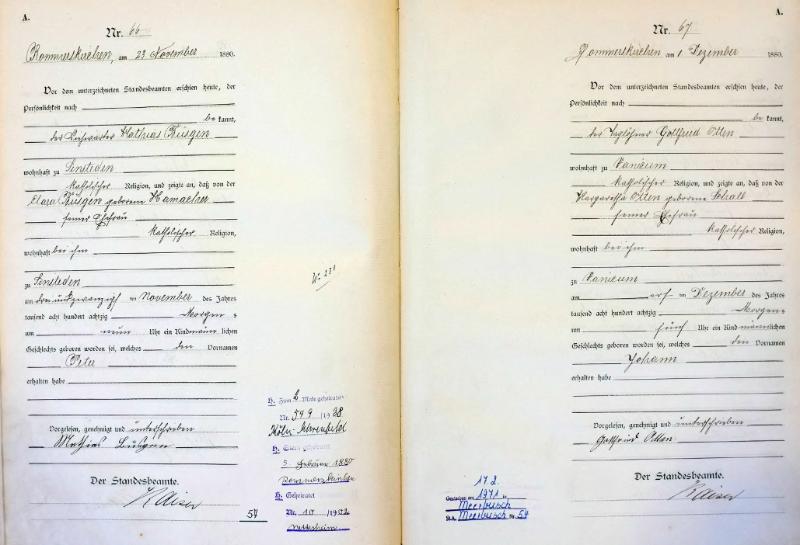 A.
Nr. 66
Rommerskirchen, am 23 November 1880.
Vor dem unterzeichneten Standesbeamten erschien heute, der
Persönlichkeit nach
be kannt,
der Mathias Büsgen
wohnhaft zu Sinsteden
katholischer Religion, und zeigte an, daß von der
Clara Büsgen geborene Hamacher
seiner Ehefrau
katholischer Religion,
wohnhaft bei ihm
zu Sinsteden
am dreiundzwanzigsten November des Jahres
tausend acht hundert achtzig Morgens
um neun Uhr ein Kind männlichen
Geschlechts geboren worden sei, welches den Vornamen
Peter
erhalten habe
Vorgelesen, genehmigt und unterschrieben
Mathias Büsgen
Der Standesbeamte.
Kaiser
57
H. Zum 2. Male geheiratet
Nr. 549 /1928
Köln-Ehrenfeld
H.
3. Februar 1880
H. Geheiratet
Nr. 10 /1902
A.
Nr. 67
Rommerskirchen am 1 Dezember 1880.
Vor dem unterzeichneten Standesbeamten erschien heute, der
Persönlichkeit nach
be kannt,
der Taglöhner Gottfried Otten
wohnhaft zu Vanikum
katholischer Religion, und zeigte an, daß von der
Margaretha Otten geborene Schall
seiner Ehefrau
katholischer Religion,
wohnhaft bei ihm
zu Vanikum
am ersten Dezember des Jahres
tausend acht hundert achtzig Morgens
um fünf Uhr ein Kind männlichen
Geschlechts geboren worden sei, welches den Vornamen
Johann
erhalten habe
Vorgelesen, genehmigt und unterschrieben
Gottfried Otten
Der Standesbeamte.
Kaiser
17 2.
Gestorben am 1971 in
Meerbusch
St.A. Meerbusch Nr. 59